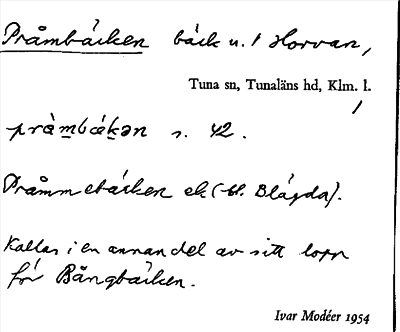 Pråmbäcken bäck n. f Horvan,
Tuna sn, Tunaläns hd, Klm. l.
pråmbäkən s. 42.
Pråmmebäcken ek (bl. Blägda).
Kallas i en annan del av sitt lopp
för Bångbäcken.
Ivar Modéer 1954